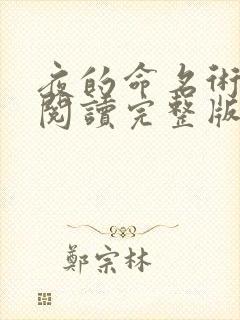 夜的命名術
閱讀完整版
鄭宗林